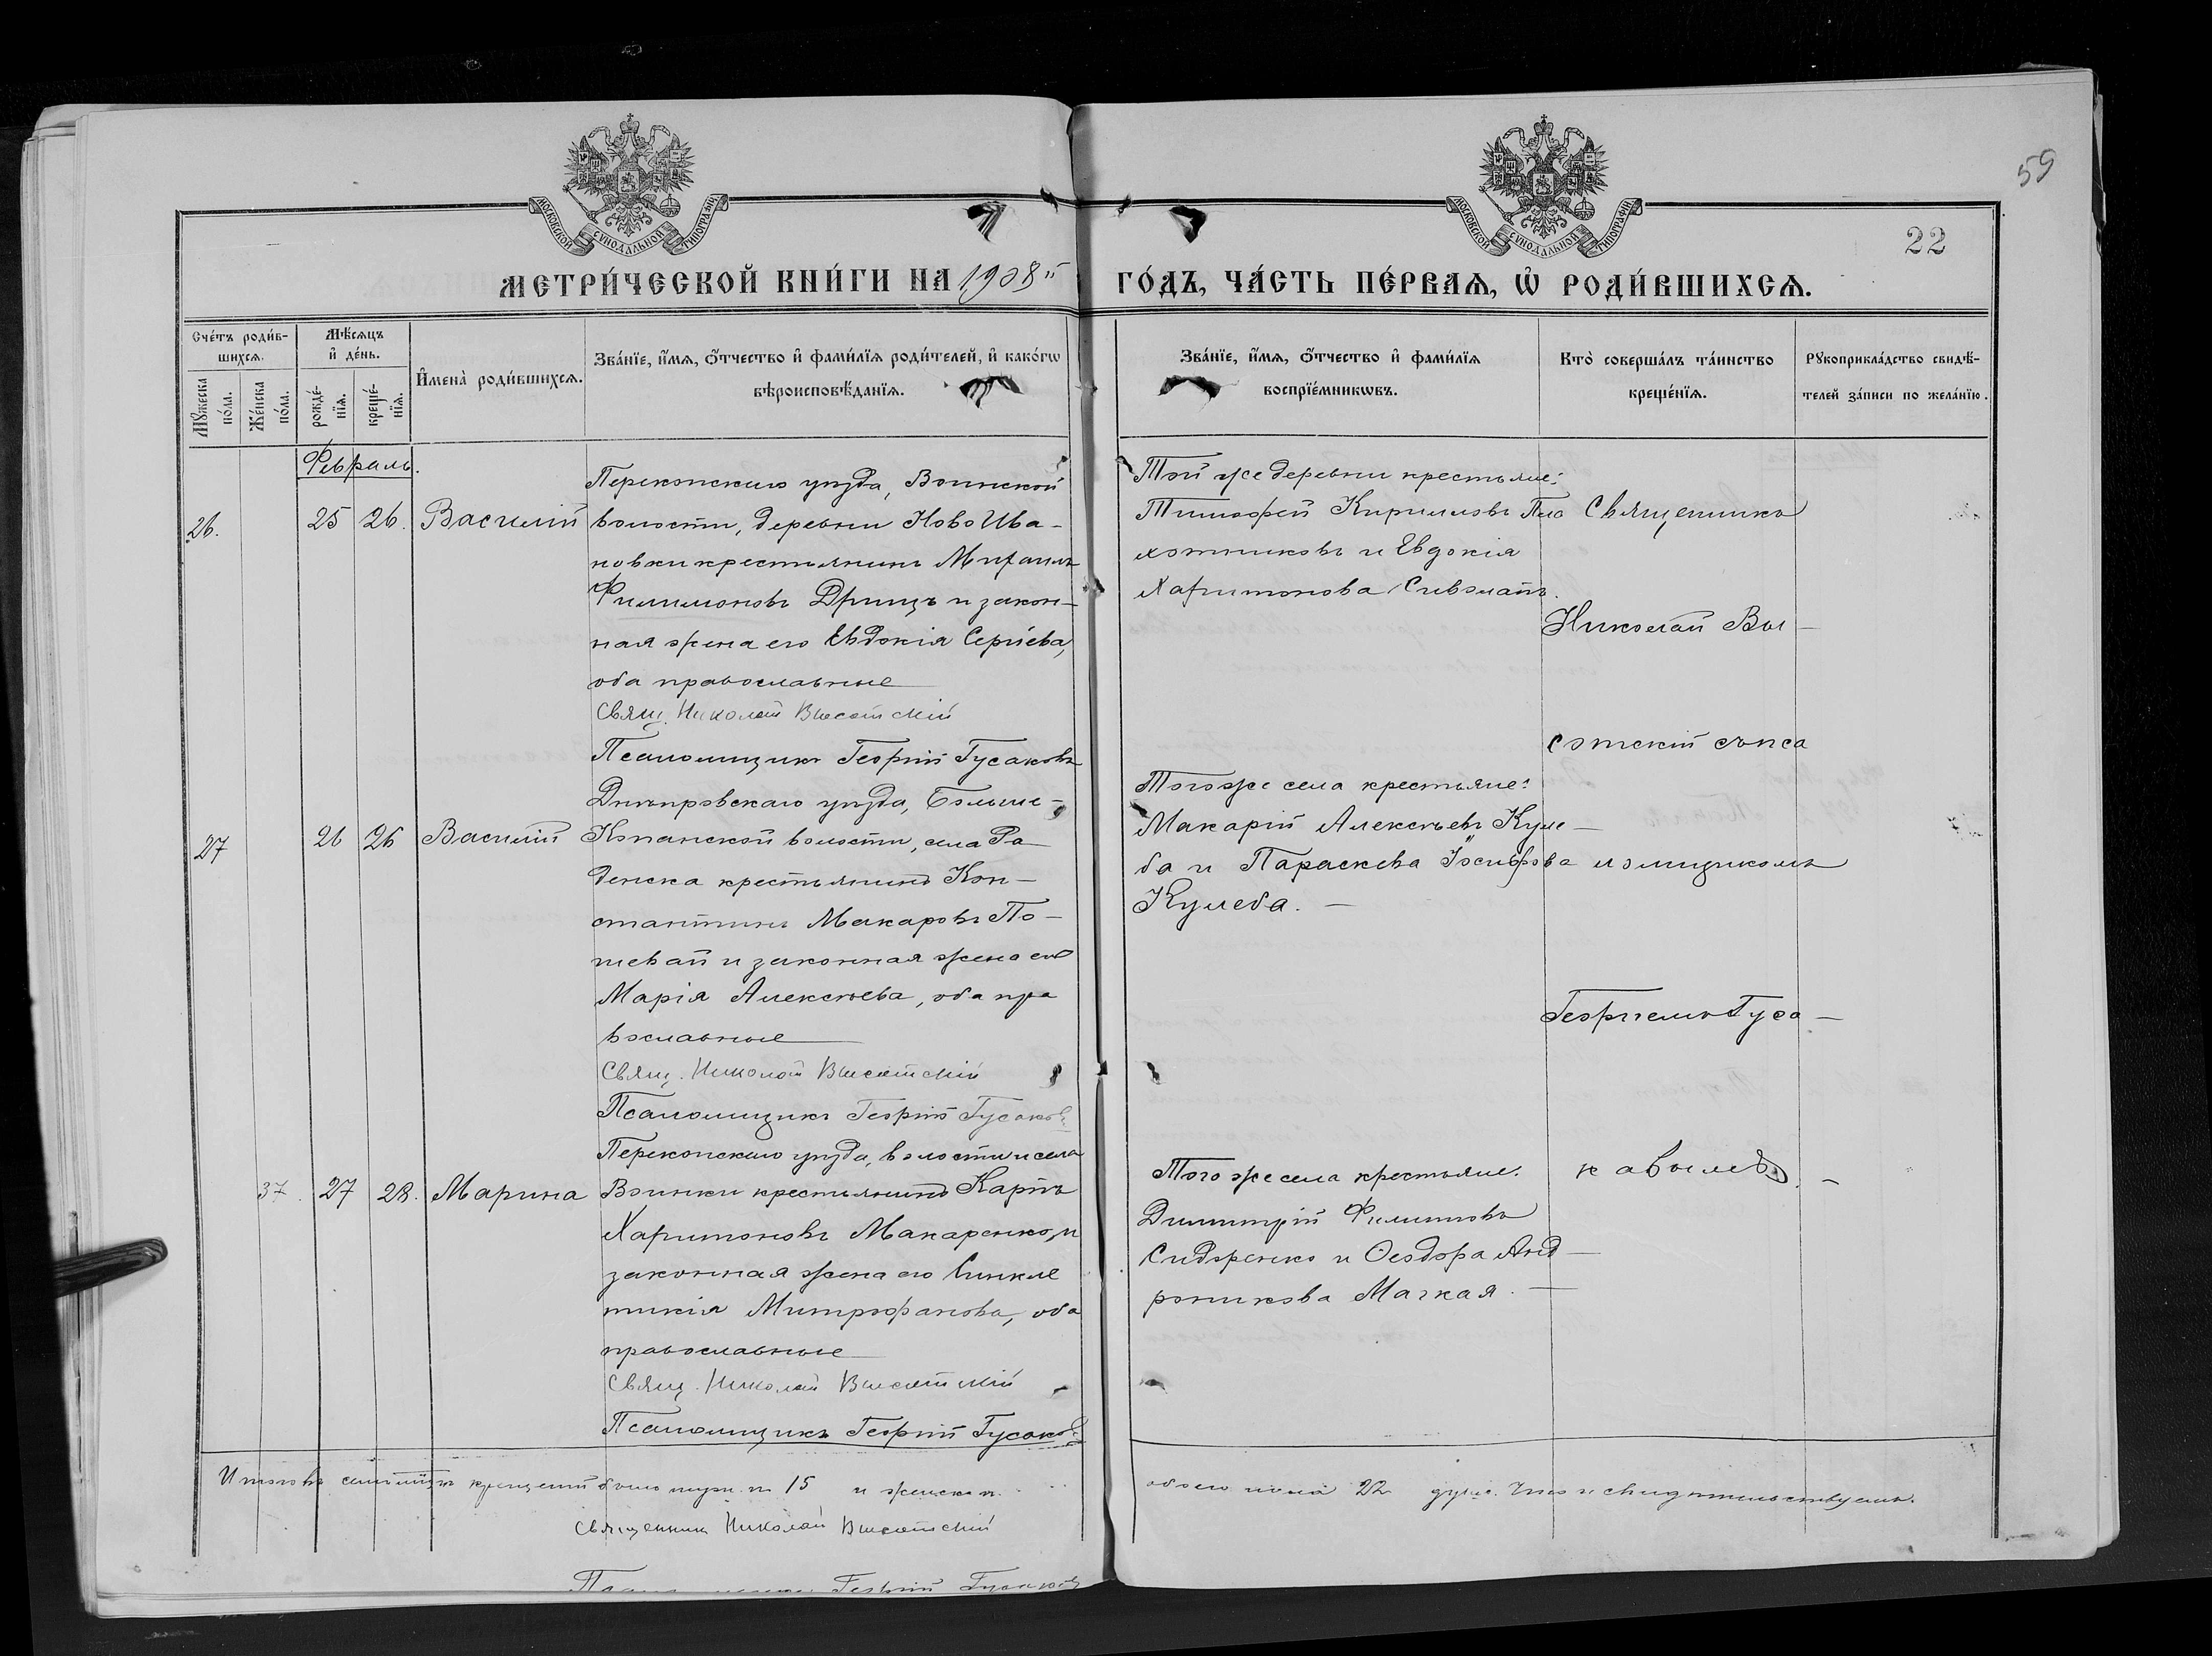 59
22
МОСКОВСКОЙ СѴНОДАЛЬНОЙ ТИПОГРАФІИ
МОСКОВСКОЙ СѴНОДАЛЬНОЙ ТИПОГРАФІИ
МЕТРИ́ЧЕСКОЙ КНИ́ГИ НА 1908й ГО́ДЪ, ЧА́СТЬ ПЕ́РВАѦ, Ѡ҆ РОДИ́ВШИХСѦ.
Сче́тъ роди́в-
шихсѧ.
Мꙋжеска по́ла.
Же́нска по́ла.
Мѣ́сѧцъ
и҆ де́нь.
рожде́-
нїѧ.
креще́-
нїѧ.
И҆мена̀ роди́вшихсѧ.
Зва́нїе, и҆́мѧ, ѻ҆́тчество и҆ фами́лїѧ роди́телей, и҆ како́гѡ
вѣроисповѣ́данїѧ.
Зва́нїе, и҆́мѧ, ѻ҆́тчество и҆ фами́лїѧ
воспрїе́мникѡвъ.
Кто̀ соверша́лъ та́инство
креще́нїѧ.
Рꙋкоприкла́дство свидѣ́-
телей за́писи по жела́нїю.
Февраль.
26. 25 26. Василій
Перекопскаго уѣзда, Воинской
волости, деревни Ново Ива-
новки крестьянинъ Михаилъ
Филимоновъ Дрищъ и закон-
ная жена его Евдокія Сергіева,
оба православные
Свящ. Николай Высотскій
Псаломщикъ Георгій Гусаковъ
Той же деревни крестьяне:
Тимофей Кирилловъ Пло
хотниковъ и Евдокія
Харитонова
27 26 26 Василій
Днѣпровскаго уѣзда, Больше-
Копанской волости, села Ра
денска крестьянинъ Кон-
стантинъ Макаровъ По-
шевай и законная жена его
Марія Алексѣева, оба пра
вославные
Свящ. Николай Высотскій
Псаломщикъ Георгій Гусаковъ
Того же села крестьяне:
Макарій Алексѣевъ Куле-
ба и Параскева Іосифова
Кулеба.
37. 27 28. Марина
Перекопскаго уѣзда, волости и села
Воинки крестьянинъ Карпъ
Харитоновъ Макаренко, и
законная жена его Синкле
тикія Митрофанова, оба
православные
Свящ. Николай Высотскій
Псаломщикъ Георгій Гусаковъ
Того же села крестьяне:
Димитрій Филиповъ
Сидоренко и Ѳеодора Анд-
роникова Мягкая.
Священникъ
Николай Вы-
сотскій съ пса
ломщикомъ
Георгіемъ Гуса-
ковымъ.
крещеній было муж. п. 15 и женска п. обоего пола 22 душ. Что и свидѣтельствуемъ.
Священникъ Николай Высотскій
Георгій Гусаковъ